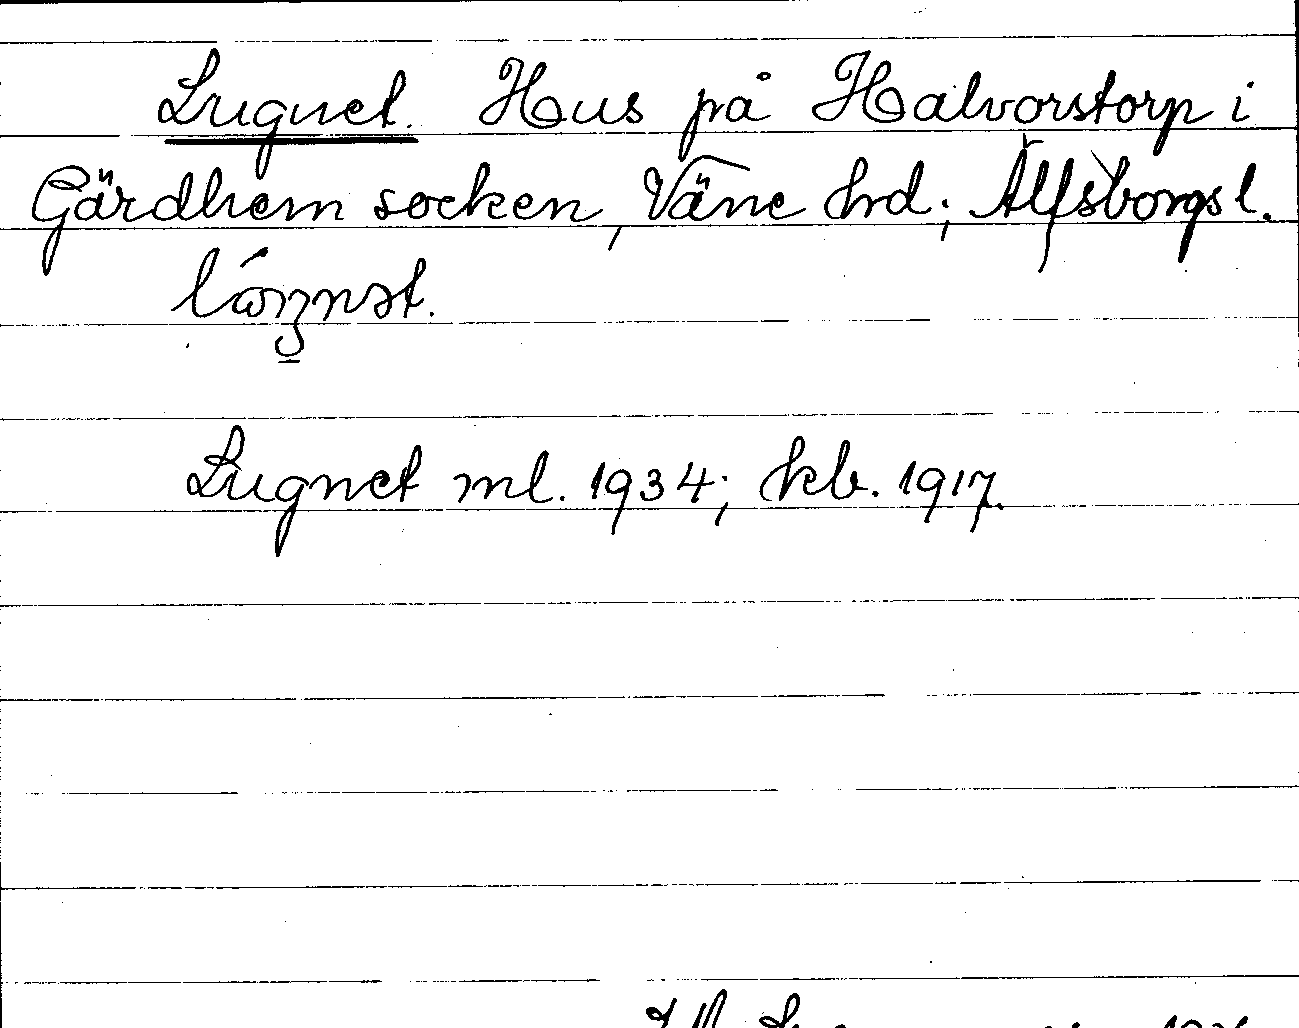 Lugnet. Hus på Halvorstorp i
Gärdhem socken, Väne hd; Älfsborgs l.
Lugnet ml. 1934; kb. 1917.